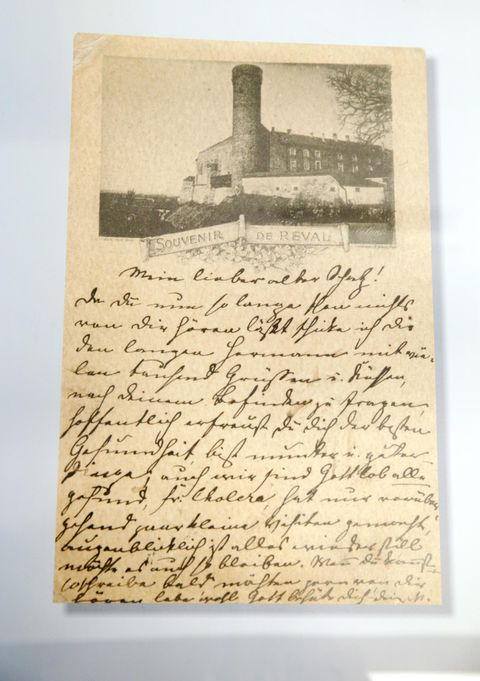 SOUVENIR DE REVAL
Mein lieber alter Schatz!
Da du nun so lange schon nichts
von dir hören läßt schicke ich dir
den langen Hermann mit vie-
len tausend Grüssen u. Küssen,
nach deinem Befinden zu fragen
hoffentlich erfreust du dich der besten
Gesundheit bist munter u. guter
Dinge, auch wir sind Gottlob alle
gesund, Fr. Cholera, hat nur vorüber-
gehend paar kleine Visiten gemacht,
augenblicklich ist alles wieder still
möchte es auch so bleiben. Wenn du kannst
so schreibe bald möchten gern von dir
hören lebe wohl Gott behüte dich dein M.